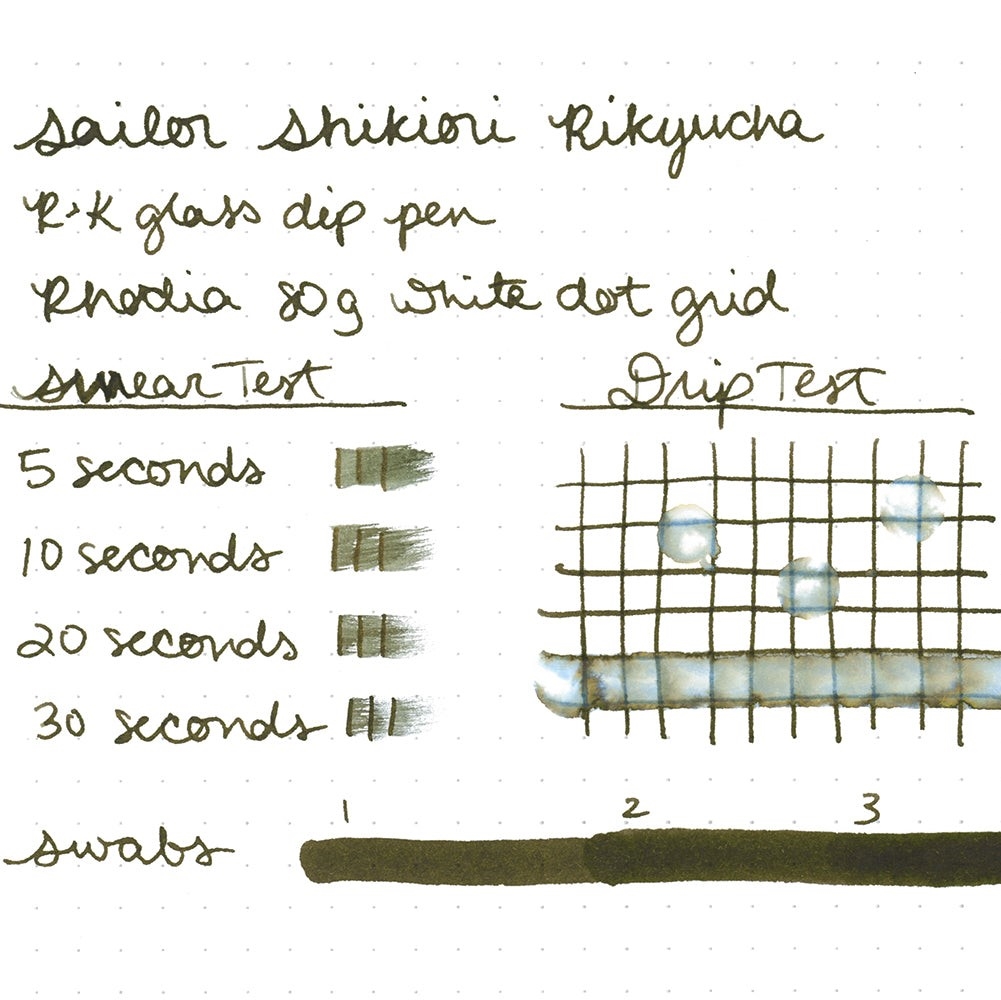 Sailor Shikiori Rikyucha
R&K glass dip pen
Rhodia 80g white dot grid
Smear Test
Drip Test
5 seconds
10 seconds
20 seconds
30 seconds
1 2 3
Swabs